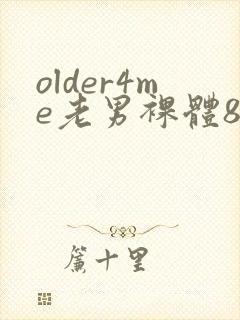 older4m
e老男裸體8
簾十里